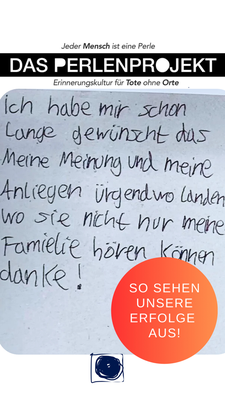 Jeder Mensch ist eine Perle
DAS PERLENPROJEKT
Erinnerungskultur für Tote ohne Orte
ich habe mir schon
Lange gewünscht das
Meine Meinung und meine
Anliegen ürgendwo landen
wo sie nicht nur meine
Famielie hören können
danke!
SO SEHEN
UNSERE
ERFOLGE
AUS!